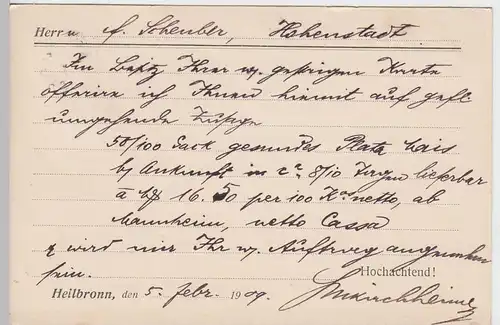 Herrn f. Scheuber, Hohenstadt
Im Besitz Ihrer w. gestrigen Karte
offerire ich Ihnen hiemit auf gefl.
umgehende Zusage
50/100 Sack gesundes Plata Mais
bei Ankunft in ca. 8/10 Tagen lieferbar
à M 16.50 per 100 Kos netto, ab
Mannheim, netto Cassa
& wird mir Ihr w. Auftrag angenehm
sein.
Hochachtend!
Heilbronn, den 5. Febr. 1909.